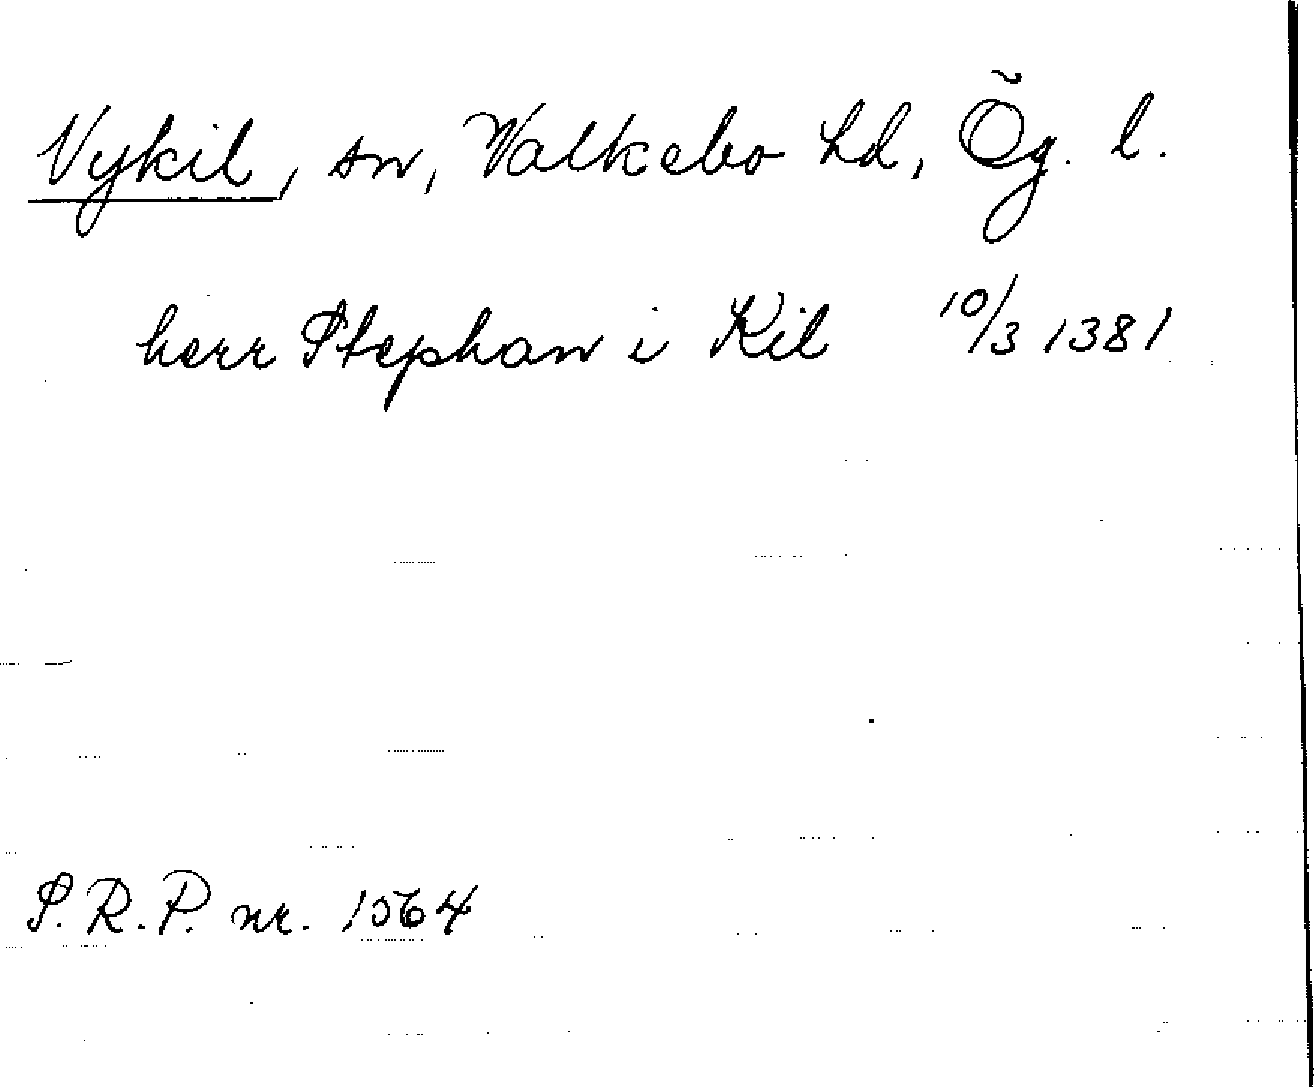 Vykil, sn, Valkebo hd, Ög. l.
herr Stephan i Kil 10/3 1381
S.R.P. nr. 1564